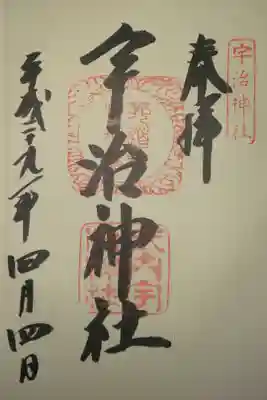 宇治神社
奉拝
宇治神社
平成二九年四月四日